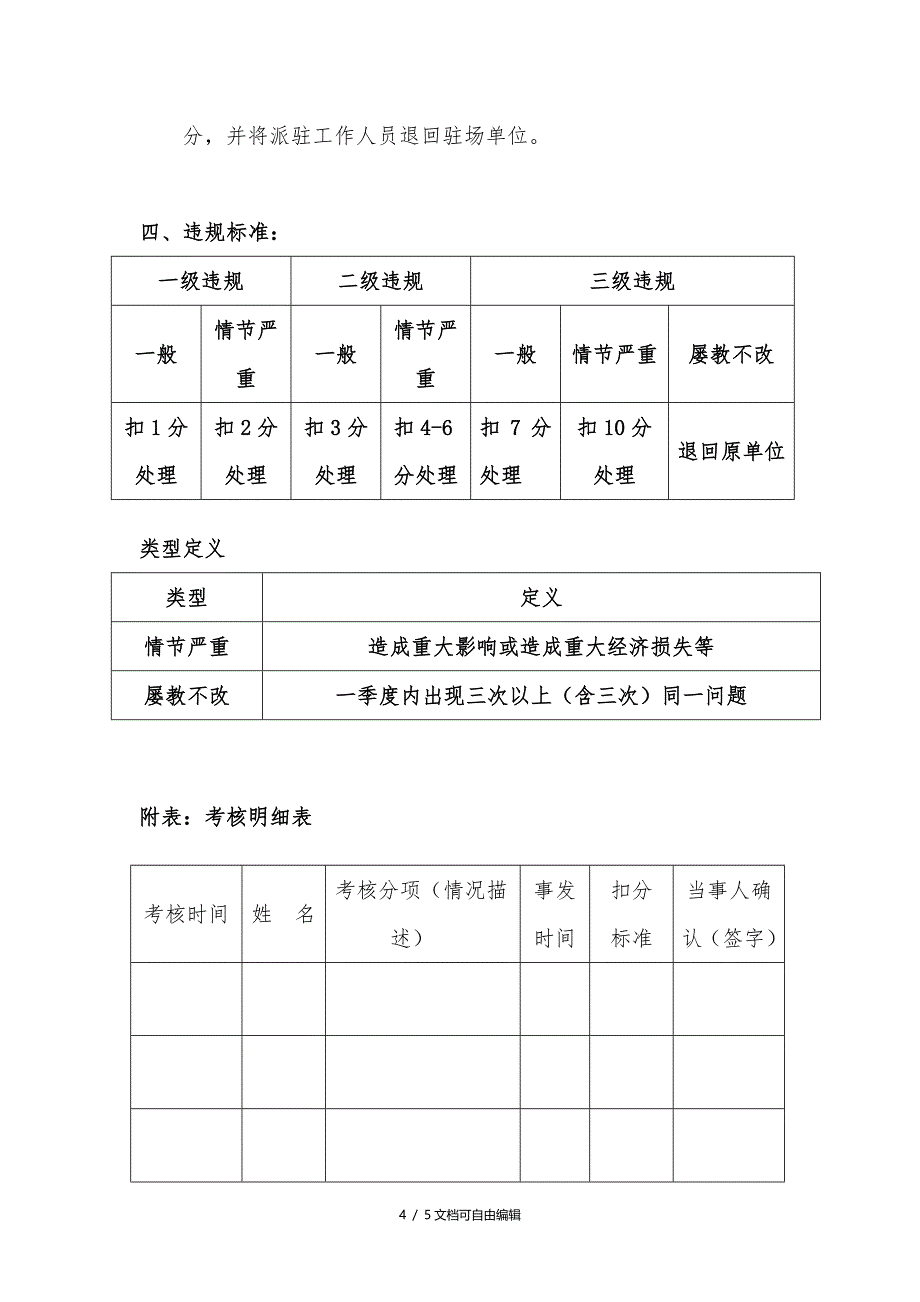 分，并将派驻工作人员退回驻场单位。
四、违规标准：
一级违规 二级违规 三级违规
一般 情节严重 一般 情节严重 一般 情节严重 屡教不改
扣1分处理 扣2分处理 扣3分处理 扣4-6分处理 扣 7 分处理 扣10分处理 退回原单位
类型定义
类型 定义
情节严重 造成重大影响或造成重大经济损失等
屡教不改 一季度内出现三次以上（含三次）同一问题
附表：考核明细表
考核时间 姓 名 考核分项（情况描述） 事发时间 扣分标准 当事人确认（签字）
4 / 5文档可自由编辑